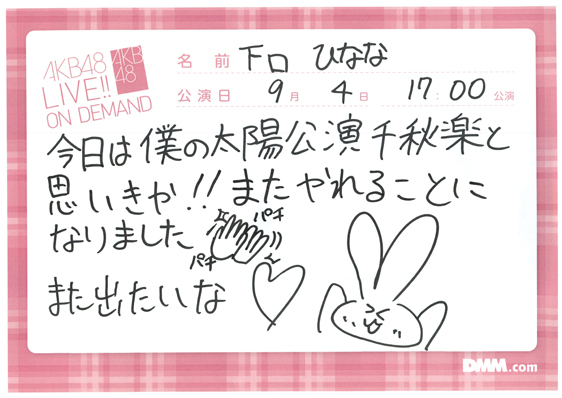 AKB48
LIVE!!
ON DEMAND
AKB
48
名前 下口 ひなな
公演日 9月 4日 17:00 公演
今日は僕の太陽公演千秋楽と
思いきや!!またやれることに
なりました パチ
パチ
また出たいな
DMM.com